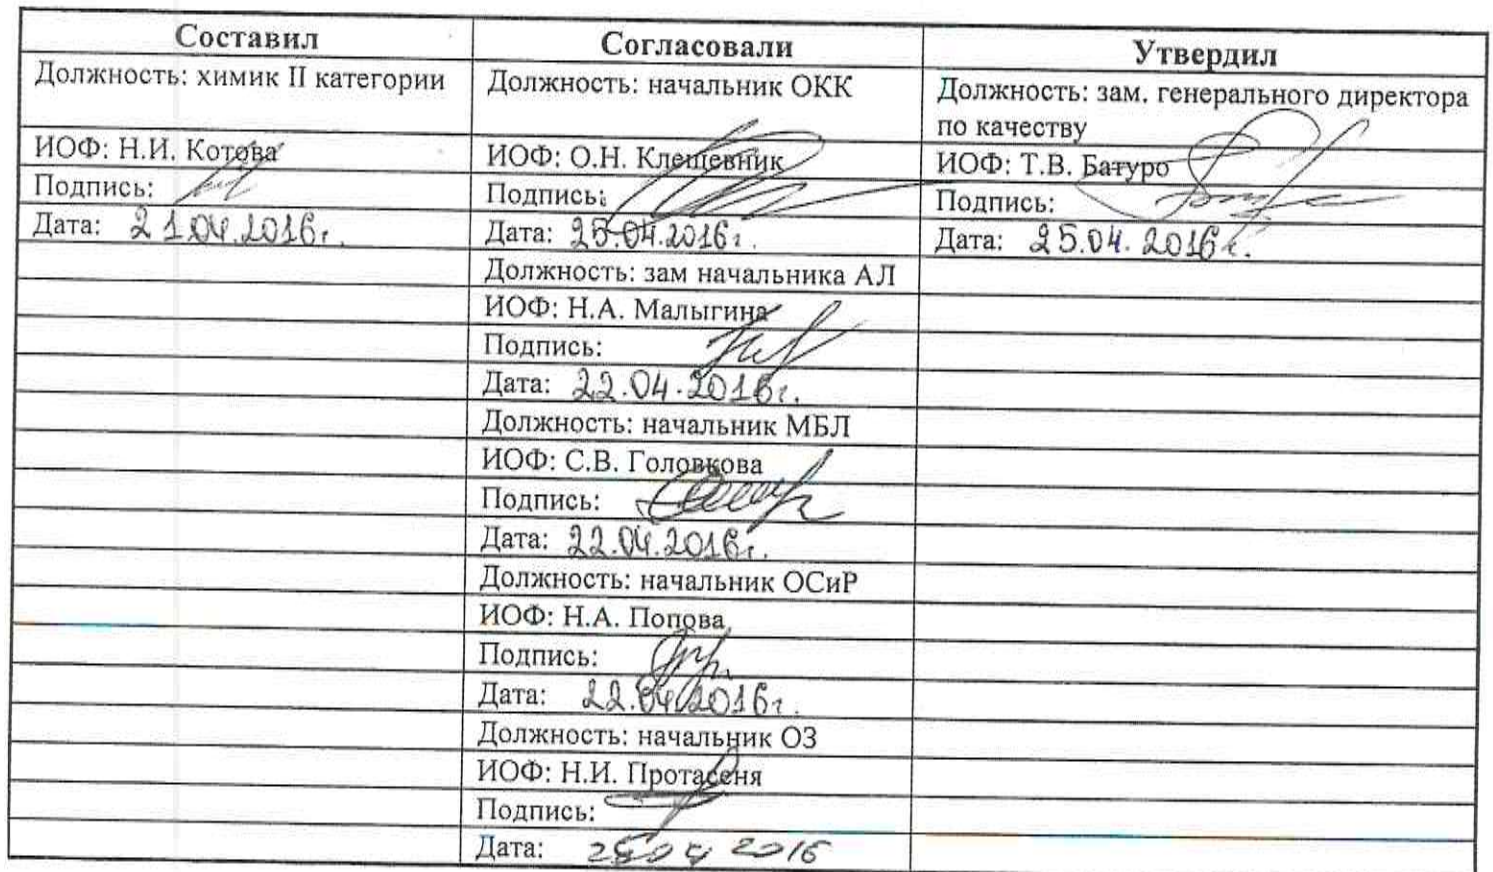 Составил
Согласовали
Утвердил
Должность: химик II категории
Должность: начальник ОКК
Должность: зам. генерального директора
по качеству
ИОФ: Н.И. Котова
ИОФ: О.Н. Клещевник
ИОФ: Т.В. Батуро
Подпись:
Подпись:
Подпись:
Дата: 21.04.2016г.
Дата: 25.04.2016г.
Дата: 25.04.2016г.
Должность: зам начальника АЛ
ИОФ: Н.А. Малыгина
Подпись:
Дата: 22.04.2016г.
Должность: начальник МБЛ
ИОФ: С.В. Головкова
Подпись:
Дата: 22.04.2016г.
Должность: начальник ОСиР
ИОФ: Н.А. Попова
Подпись:
Дата: 22.04.2016г.
Должность: начальник ОЗ
ИОФ: Н.И. Протасеня
Подпись:
Дата: 25 04 2016